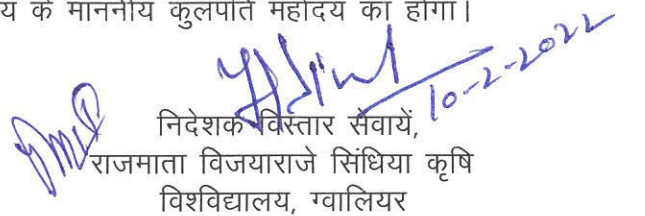 य के माननीय कुलपति महोदय का होगा।
10-2-2022
निदेशक विस्तार सेवायें,
राजमाता विजयाराजे सिंधिया कृषि
विश्वविद्यालय, ग्वालियर